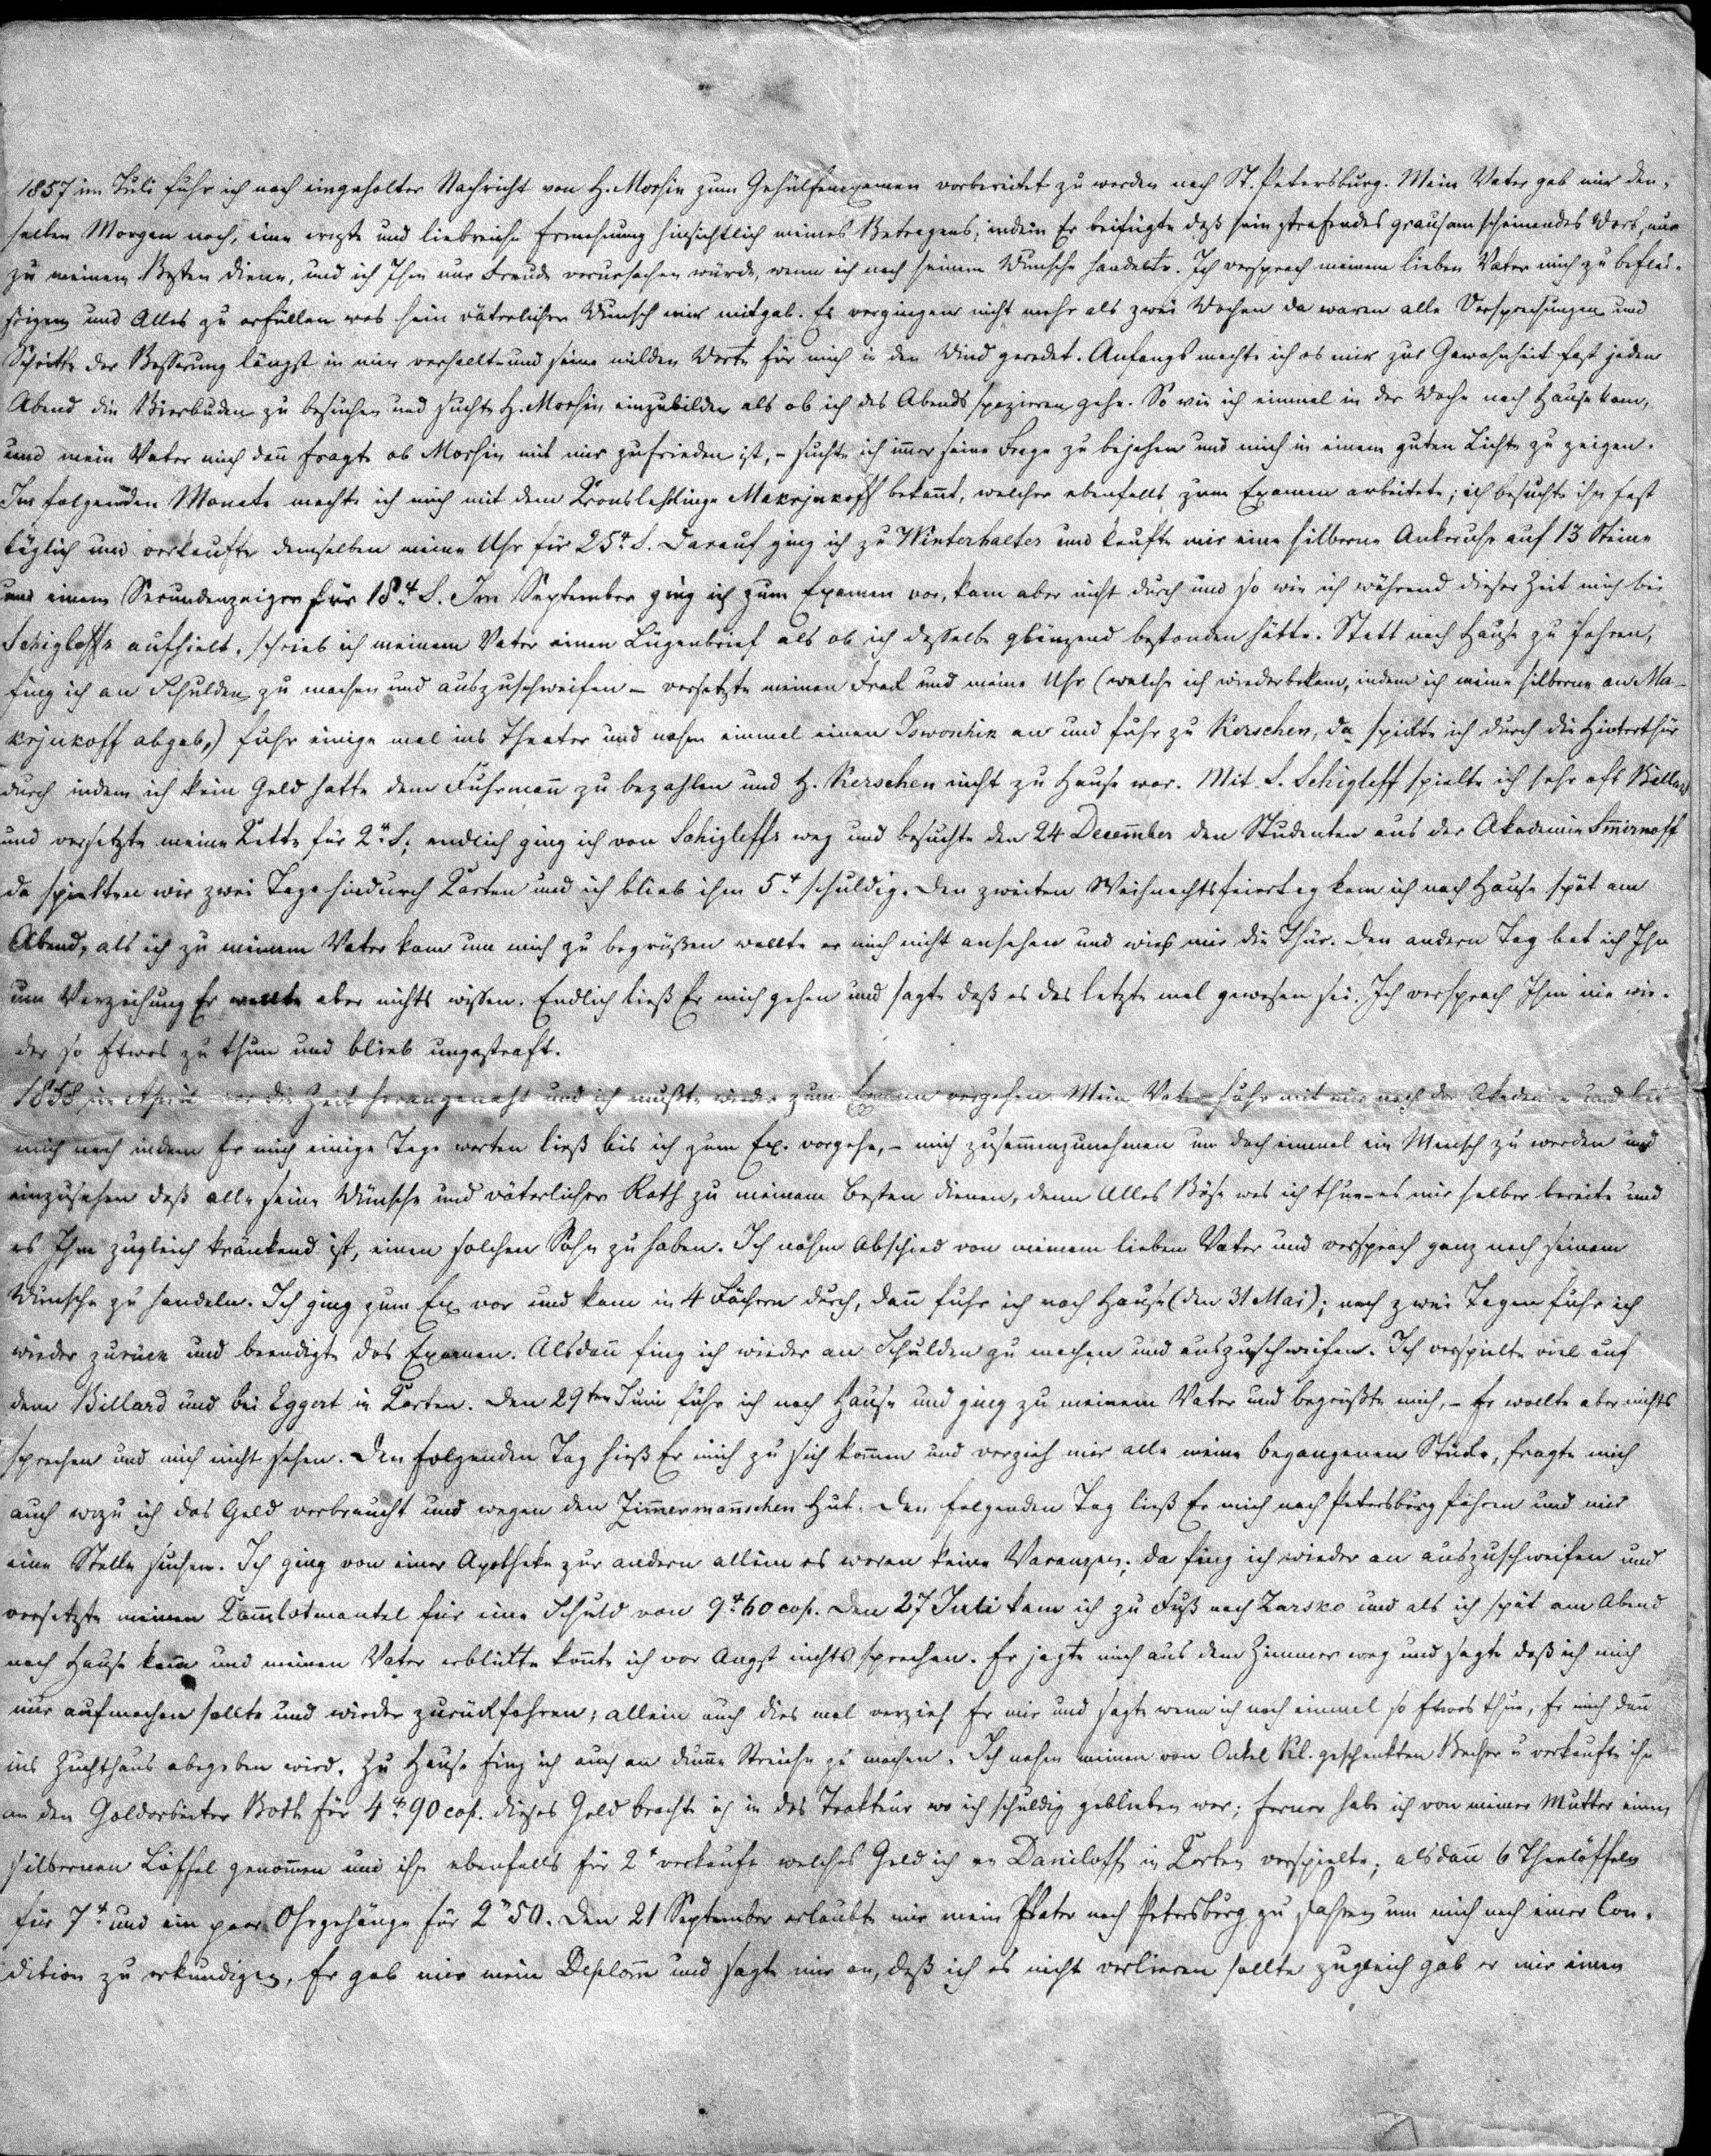 1857 im Juli fuhr ich nach eingeholter Nachricht von H. Morhin zum Gehülfenexamen vorbereitet zu werden nach St. Petersburg. Mein Vater gab mir den-
selben Morgen noch, eine ernste und liebreiche Ermahnung hinsichtlich meines Betragens, indem Er beifügte daß sein strafendes grausam scheinendes Wort, nur
zu meinem Besten diene, und ich Ihm nur Freude verursachen würde, wenn ich nach seinem Wunsche handelte. Ich versprach meinem lieben Vater mich zu beflei-
ßigen und Alles zu erfüllen was sein väterlicher Wunsch mir mitgab. Es vergingen nicht mehr als zwei Wochen da waren alle Versprechungen und
Schritte der Besserung längst in mir verhallt und seine milden Worte für mich in den Wind geredet. Anfangs machte ich es mir zur Gewohnheit fast jeden
Abend die Bierbuden zu besuchen und suchte H. Morhin einzubilden als ob ich des Abends spazieren gehe. So wie ich einmal in der Woche nach Hause kam,
und mein Vater mich dann fragte ob Morhin mit mir zufrieden ist, - suchte ich immer seine Frage zu bejahen und mich in einem guten Lichte zu zeigen.
Im folgenden Monate machte ich mich mit dem Kronslehrlinge Makrjukoff bekannt, welcher ebenfalls zum Examen arbeitete; ich besuchte ihn fast
täglich und verkaufte demselben meine Uhr für 25 S. Darauf ging ich zu Winterhalter und kaufte mir eine silberne Ankeruhr auf 13 Steine
und einem Secundenzeiger für 18 S. Im September ging ich zum Examen vor, kam aber nicht durch und so wie ich während dieser Zeit mich bei
Schigleffs aufhielt, schrieb ich meinem Vater einen Lügenbrief als ob ich dasselbe glänzend bestanden hätte. Statt nach Hause zu fahren,
fing ich an Schulden zu machen und auszuschweifen - versetzte meinen Frack und meine Uhr (welche ich wiederbekam, indem ich meine silberne an Ma-
krjukoff abgab,) fuhr einige mal ins Theater und nahm einmal einen Iswoschik an und fuhr zu Kerschen, da spielte ich durch die Hinterthür
durch indem ich kein Geld hatte dem Fuhrmann zu bezahlen und H. Kerschen nicht zu Hause war. Mit S. Schigleff spielte ich sehr oft Billard
und versetzte meine Kette für 2 S; endlich ging ich von Schigleffs weg und besuchte den 24 December den Studenten aus der Akademie Smirnoff
da spielten wir zwei Tage hindurch Karten und ich blieb ihm 5 schuldig. Den zweiten Weihnachtsfeiertag kam ich nach Hause spät am
Abend, als ich zu meinem Vater kam um mich zu begrüßen wollte er mich nicht ansehen und wies mir die Thür. Den andern Tag bat ich Ihn
um Verzeihung Er wollte aber nichts wissen. Endlich ließ Er mich gehen und sagte daß es das letzte mal gewesen sei. Ich versprach Ihm nie wie-
der so Etwas zu thun und blieb ungestraft.
1858 im April war die Zeit herangenaht und ich mußte wieder zum Examen vorgehen Mein Vater fuhr mit mir nach der Akademie und bat
mich noch indem Er mich einige Tage warten ließ bis ich zum Ex. vorgehe, - mich zusammenzunehmen um doch einmal ein Mensch zu werden und
einzusehen daß alle seine Wünsche und väterlicher Rath zu meinem Besten dienen, denn Alles Böse was ich thue - es mir selber bereite und
es Ihm zugleich kränkend ist, einen solchen Sohn zu haben. Ich nahm Abschied von meinem lieben Vater und versprach ganz nach seinem
Wunsche zu handeln. Ich ging zum Ex. vor und kam in 4 Fächern durch, dann fuhr ich nach Hause (den 31 Mai); nach zwei Tagen fuhr ich
wieder zurück und beendigte das Examen. Alsdann fing ich wieder an Schulden zu machen und auszuschweifen. Ich verspielte viel auf
dem Billard und bei Eggert in Karten. Den 29ten Juni fuhr ich nach Hause und ging zu meinem Vater und begrüßte mich, - Er wollte aber nichts
sprechen und mich nicht sehen. Den folgenden Tag hieß Er mich zu sich kommen und verzieh mir alle meine begangenen Stücke, fragte mich
auch wozu ich das Geld verbraucht und wegen den Zimmermannschen Hut. Den folgenden Tag ließ Er mich nach Petersburg fahren und mir
eine Stelle suchen. Ich ging von einer Apotheke zur andern allein es waren keine Vacanzen; da fing ich wieder an auszuschweifen und
versetzte meinen Kammlotmantel für eine Schuld von 9 60 cop. Den 27 Juli kam ich zu Fuß nach Zarsko und als ich spät am Abend
nach Hause kam und meinen Vater erblickte konnte ich vor Angst nichts sprechen. Er jagte mich aus dem Zimmer weg und sagte daß ich mich
nur aufmachen sollte und wieder zurückfahren; allein auch dies mal verzieh Er mir und sagte wenn ich noch einmal so Etwas thue, Er mich dann
ins Zuchthaus abgeben wird. Zu Hause fing ich auch an dumme Streiche zu machen. Ich nahm meinen von Onkel Kl. geschenkten Becher u verkaufte ihn
an den Goldarbeiter Both für 4 90 cop. dieses Geld brachte ich in das Trakteur wo ich schuldig geblieben war; ferner habe ich von meiner Mutter einen
silbernen Löffel genommen und ihn ebenfalls für 2 verkauft welches Geld ich an Daniloff in Karten verspielte; alsdann 6 Theelöffeln
für 7 und ein paar Ohrgehänge für 2 50. Den 21 September erlaubte mir mein Vater nach Petersburg zu fahren um mich nach einer Con-
dition zu erkundigen, Er gab mir mein Deplom und sagte mir an, daß ich es nicht verlieren sollte zugleich gab er mir einen